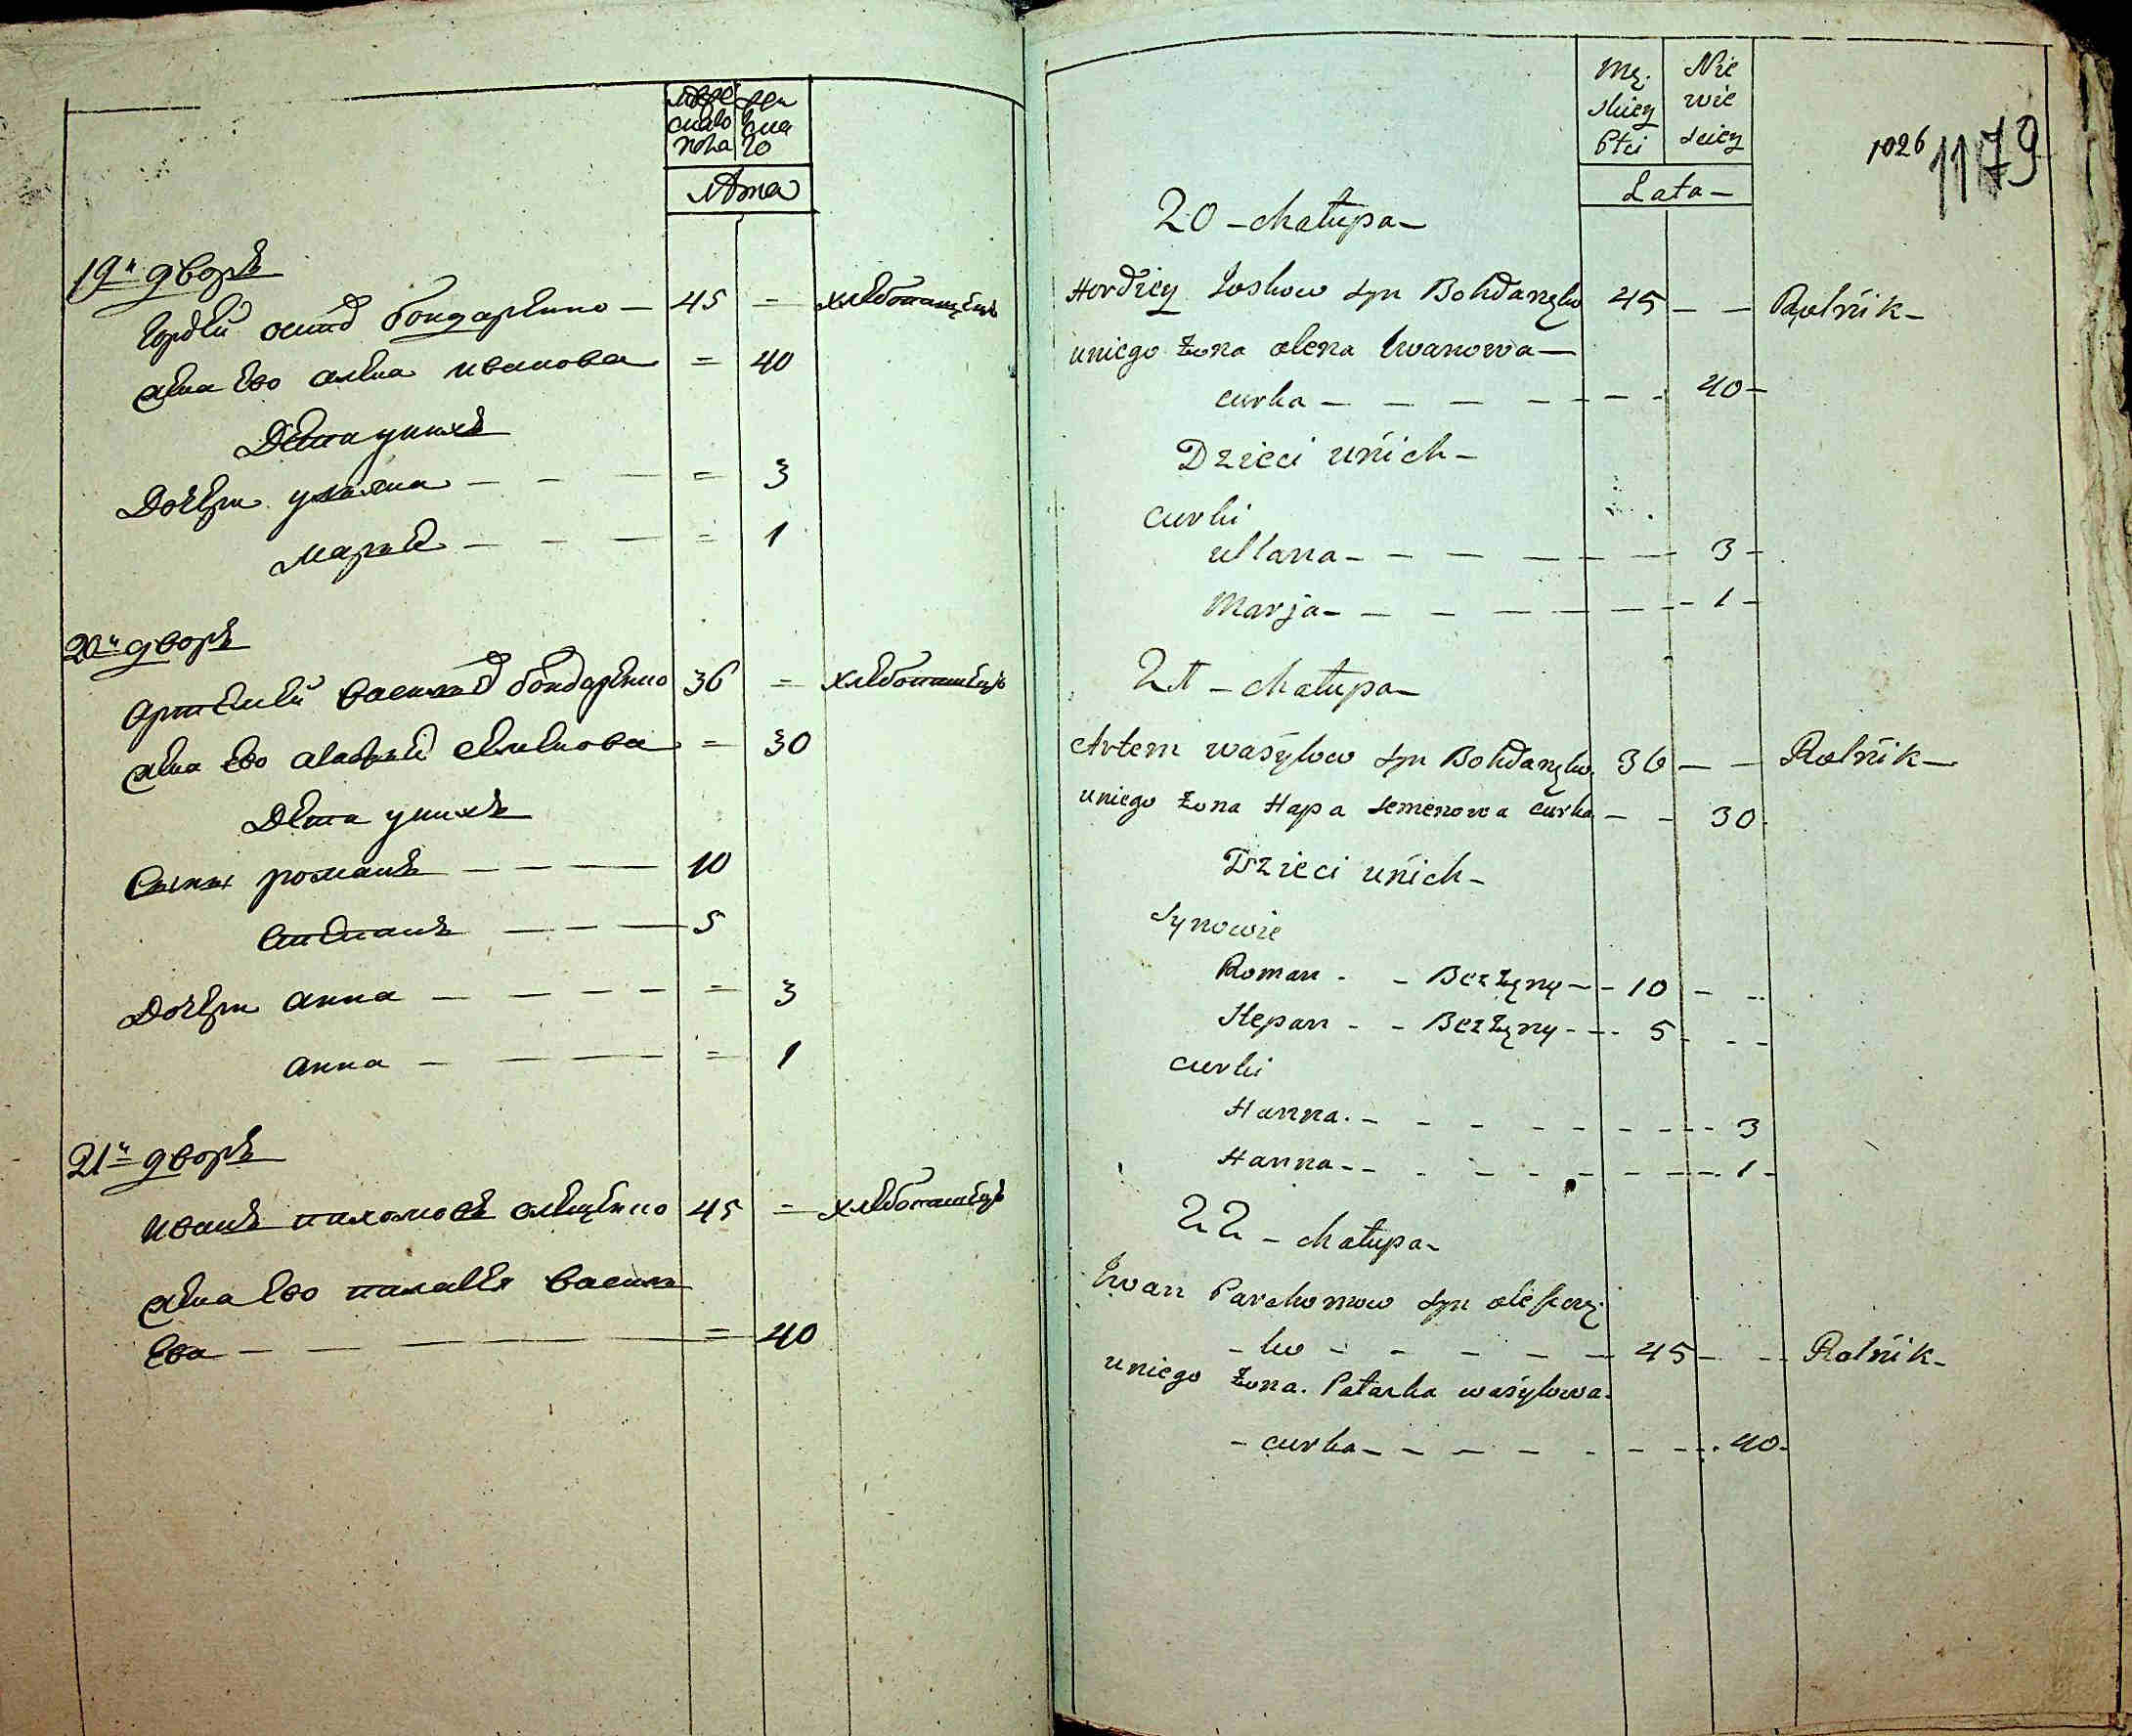 муже
скаго
пола
жен
ска
го
Лѣта
19й дворъ
Гордѣй осипов бондаренко — 45 = хлебопашецъ
жена ево алена иванова = 40
Дѣти у нихъ
Дочери уляна — — — = 3
мария — — — = 1
20й дворъ
Артемей василев бондаренко 36 = хлебопашецъ
жена ево агафия семенова = 30
Дѣти у нихъ
Сыны романъ — — — 10
степанъ — — — 5
Дочери анна — — — — = 3
анна — — — = 1
21й дворъ
иванъ пахомовъ олещенко 45 = хлебопашецъ
жена ево палагея василь
ева — — — = 40
Mę.
skiey
Płci
Nie
wie
sciey
Lata —
1026
1179
20 — chałupa —
Hordiey Joskow syn Bohdanęko 45 — — Rolnik —
uniego żona olena Iwanowa —
curka — — — — — — 40 —
Dzieci unich —
curki
ullana — — — — — — 3 —
Marja — — — — — — 1 —
21 — chałupa —
Artem wasylow syn Bohdanęko 36 — — Rolnik —
uniego żona Hapa semenowa curka — — 30
Dzieci unich —
synowie
Roman - - Bezżęny — - 10 — --
Stepan - - Bezżęny - — - 5 - - -
curki
Hanna. — - - - - - - - - 3
Hanna - - - - - - - - - 1 -
22 — chałupa —
Iwan Parchomow syn
- ko - - - - — — 45 — — Rolnik —
uniego żona. Patarka wasylowa.
- curka — — — — - - - 40 -